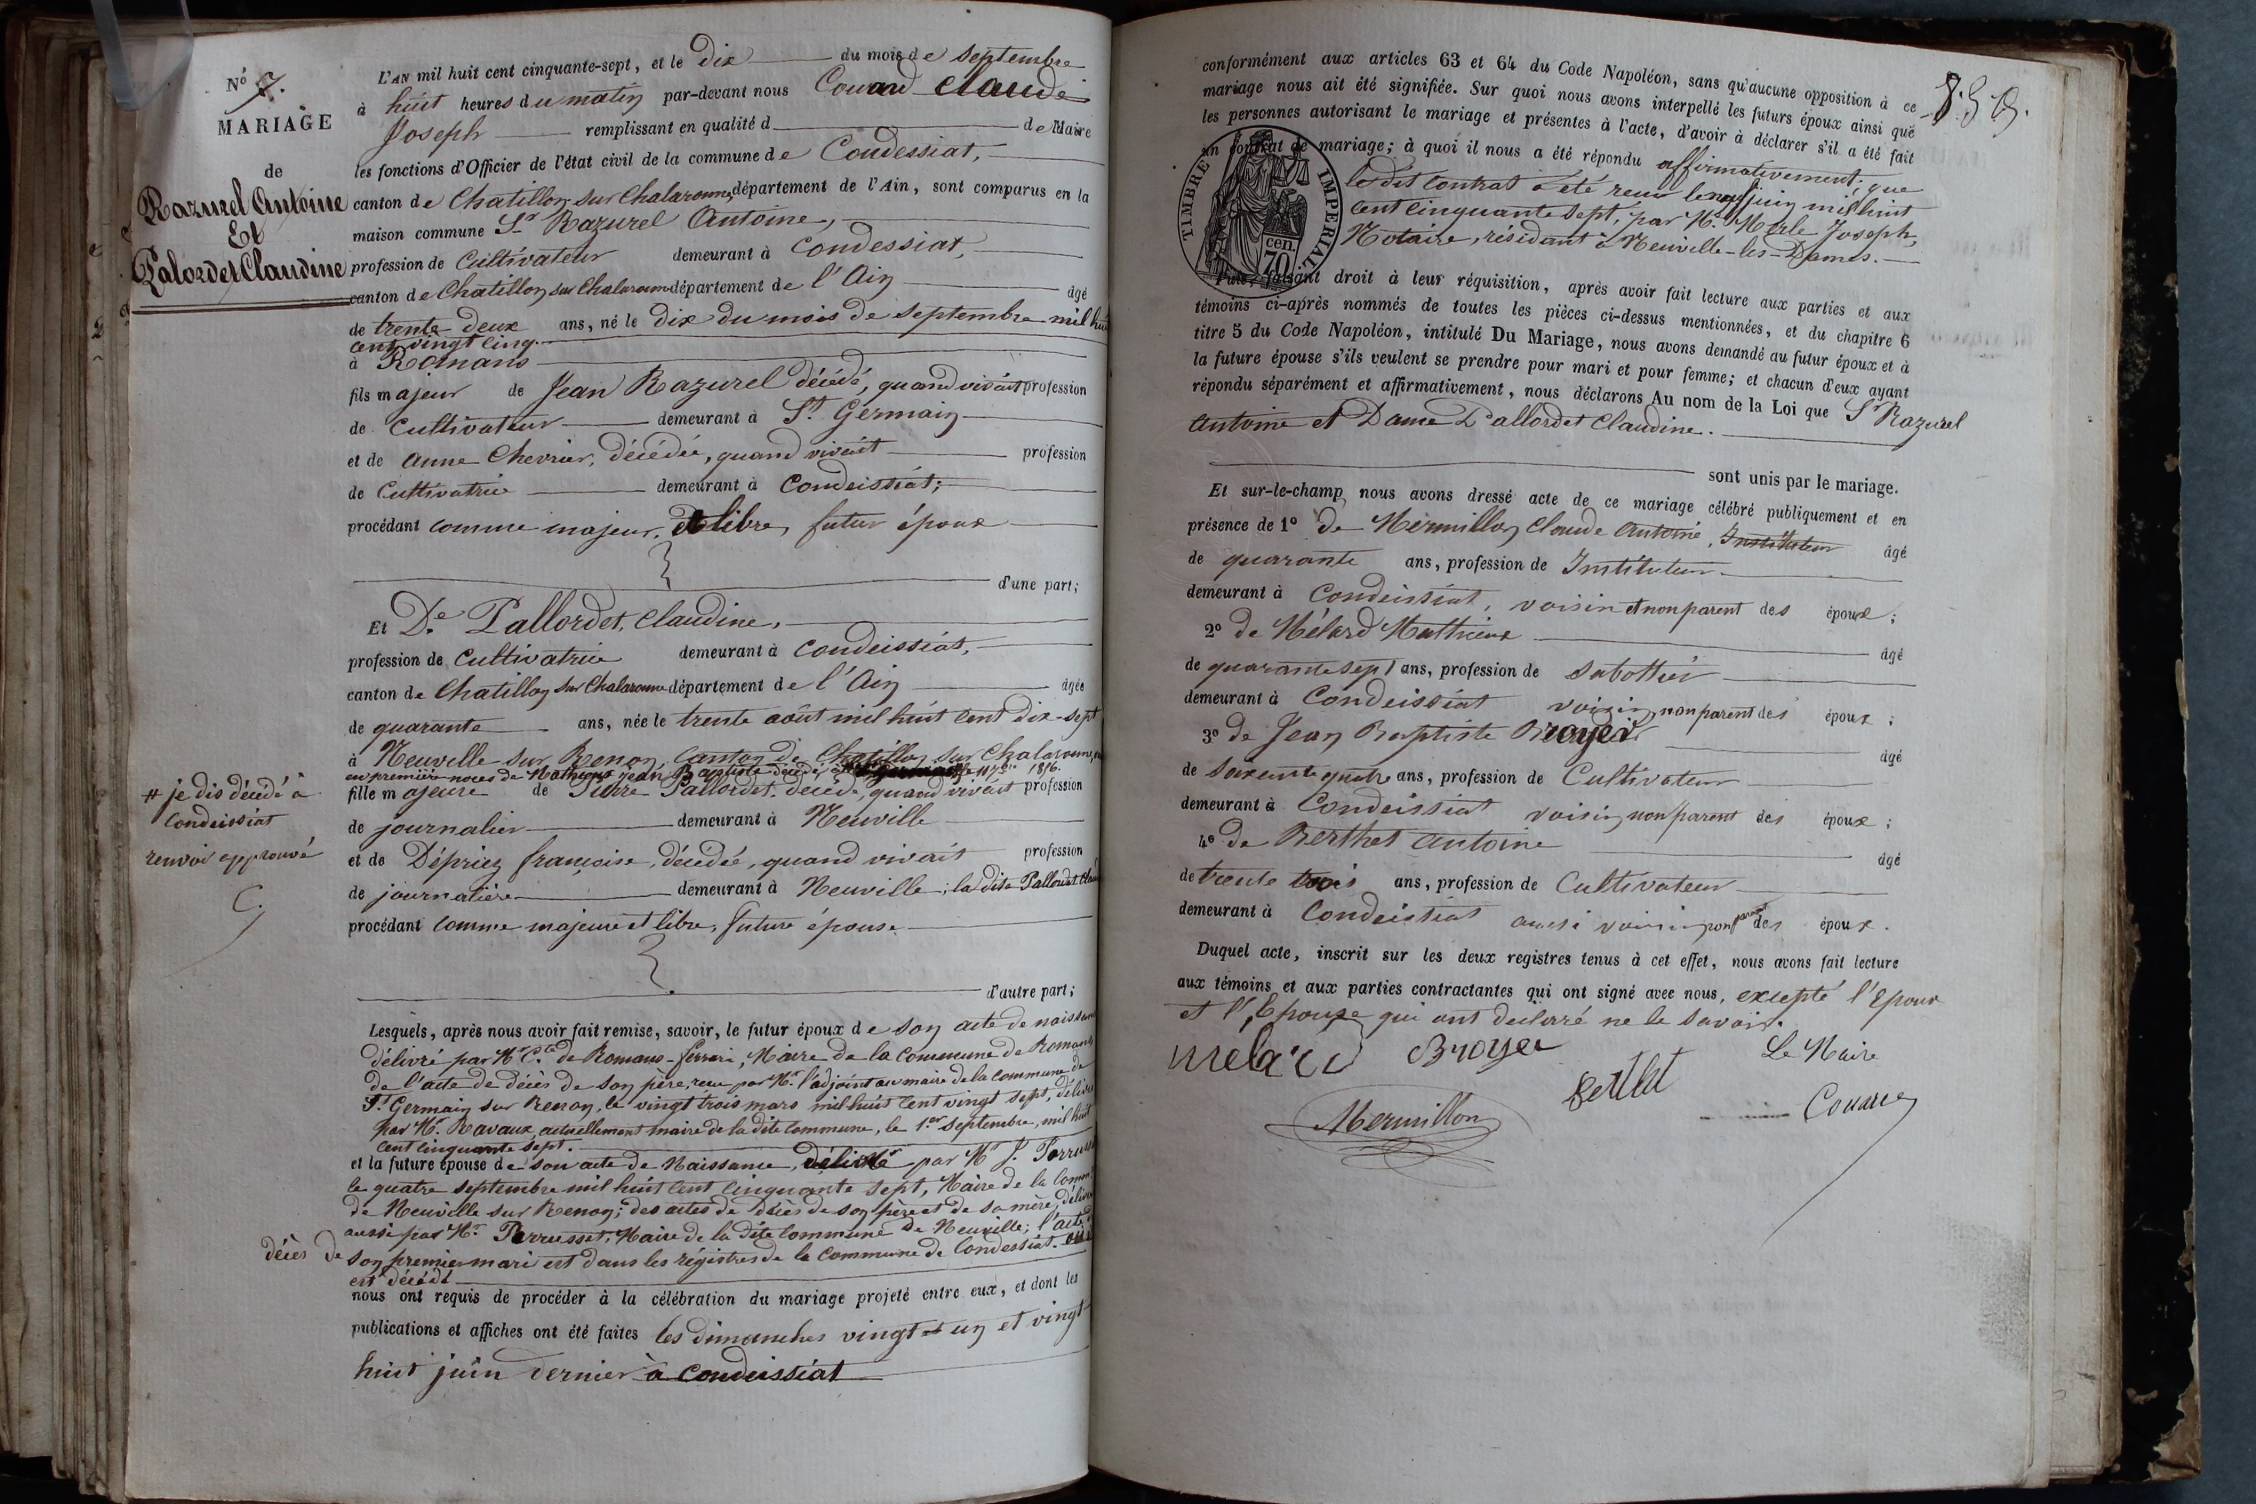 Nº 7.
MARIAGE
de
Razurel Antoine
Et
Palordet Claudine
L'AN mil huit cent cinquante-sept, et le dix du mois de septembre
à huit heures du matin par-devant nous Couard Claude
Joseph remplissant en qualité d de Maire
les fonctions d'Officier de l'état civil de la commune de Condessiat,
canton de Chatillon sur Chalaronne, département de l'Ain, sont comparus en la
maison commune Sr Razurel Antoine,
profession de Cultivateur demeurant à Condessiat,
canton de Chatillon sur Chalaronne département de l'Ain âgé
de trente deux ans, né le dix du mois de septembre mil huit
cent vingt cinq.
à Romans
fils majeur de Jean Razurel décédé, quand vivait profession
de Cultivateur demeurant à St Germain
et de Anne Chevrier, décédée, quand vivait profession
de Cultivatrice demeurant à Condeissiat;
procédant comme majeur, et libre, futur époux
d'une part;
Et De Pallordet, Claudine,
profession de Cultivatrice demeurant à Condeissiat,
canton de Chatillon sur Chalaronne département de l'Ain âgée
de quarante ans, née le trente août mil huit cent dix-sept
à Neuville sur Renon, Canton de Chatillon sur Chalaronne,
en premières noces de Mathieux Jean Baptiste décédé à 1856.
fille majeure de Pierre Pallordet, décédé, quand vivait profession
# je dis décédé à
Condeissiat
renvoi approuvé
C.
de journalier demeurant à Neuville
et de Dépriez françoise, décédée, quand vivait profession
de journalière demeurant à Neuville; la dite Pallordet
procédant comme majeure et libre, future épouse
d'autre part;
Lesquels, après nous avoir fait remise, savoir, le futur époux de son acte de naissance
délivré par Mr Cte de Romans-ferrari, Maire de la Commune de Romans
de l'acte de décès de son père, reçu par Mr l'adjoint au maire de la commune de
St Germain sur Renon, le vingt trois mars mil huit cent vingt sept, délivré
par Mr. Ravaux, actuellement maire de la dite Commune, le 1er septembre, mil huit
cent cinquante sept.
et la future épouse de son acte de Naissance, délivré par Mr J. Perrusset
le quatre septembre mil huit cent cinquante sept, Maire de la Commune
de Neuville sur Renon; des actes de décès de son père et de sa mère, délivrés
aussi par Mr. Perrusset, Maire de la dite Commune de Neuville; l'acte de
décès de son premier mari est dans les régistres de la Commune de Condessiat.
est décédé
nous ont requis de procéder à la célébration du mariage projeté entre eux, et dont les
publications et affiches ont été faites les dimanches vingt et un et vingt
huit juin dernier à Condeissiat
conformément aux articles 63 et 64 du Code Napoléon, sans qu'aucune opposition à ce
mariage nous ait été signifiée. Sur quoi nous avons interpellé les futurs époux ainsi que
les personnes autorisant le mariage et présentes à l'acte, d'avoir à déclarer s'il a été fait
un contrat de mariage; à quoi il nous a été répondu affirmativement; que
le dit Contrat a été reçu le neuf juin mil huit
cent cinquante sept, par Mr. Merle Joseph,
Notaire, résidant à Neuville-les-Dames.
TIMBRE IMPERIAL
70 cen.
Puis, faisant droit à leur réquisition, après avoir fait lecture aux parties et aux
témoins ci-après nommés de toutes les pièces ci-dessus mentionnées, et du chapitre 6
titre 5 du Code Napoléon, intitulé Du Mariage, nous avons demandé au futur époux et à
la future épouse s'ils veulent se prendre pour mari et pour femme; et chacun d'eux ayant
répondu séparément et affirmativement, nous déclarons Au nom de la Loi que Sr Razurel
Antoine et Dame Pallordet Claudine.
sont unis par le mariage.
Et sur-le-champ nous avons dressé acte de ce mariage célébré publiquement et en
présence de 1º de Mermillon Claude Antoine, Instituteur âgé
de quarante ans, profession de Instituteur
demeurant à Condeissiat, voisin et non parent des époux;
2º de Mélard Mathieux âgé
de quarante sept ans, profession de sabottier
demeurant à Condeissiat voisin, non parent des époux;
3º de Jean Baptiste Broyer âgé
de soixante quatre ans, profession de Cultivateur
demeurant à Condeissiat voisin, non parent des époux;
4º de Berthet Antoine âgé
de trente trois ans, profession de Cultivateur
demeurant à Condeissiat aussi voisin, non parent des époux.
Duquel acte, inscrit sur les deux registres tenus à cet effet, nous avons fait lecture
aux témoins et aux parties contractantes qui ont signé avec nous, excepté l'Epoux
et l'Epouse qui ont déclaré ne le savoir.
melard Broyer
Le Maire
Berthet
Couard
Mermillon